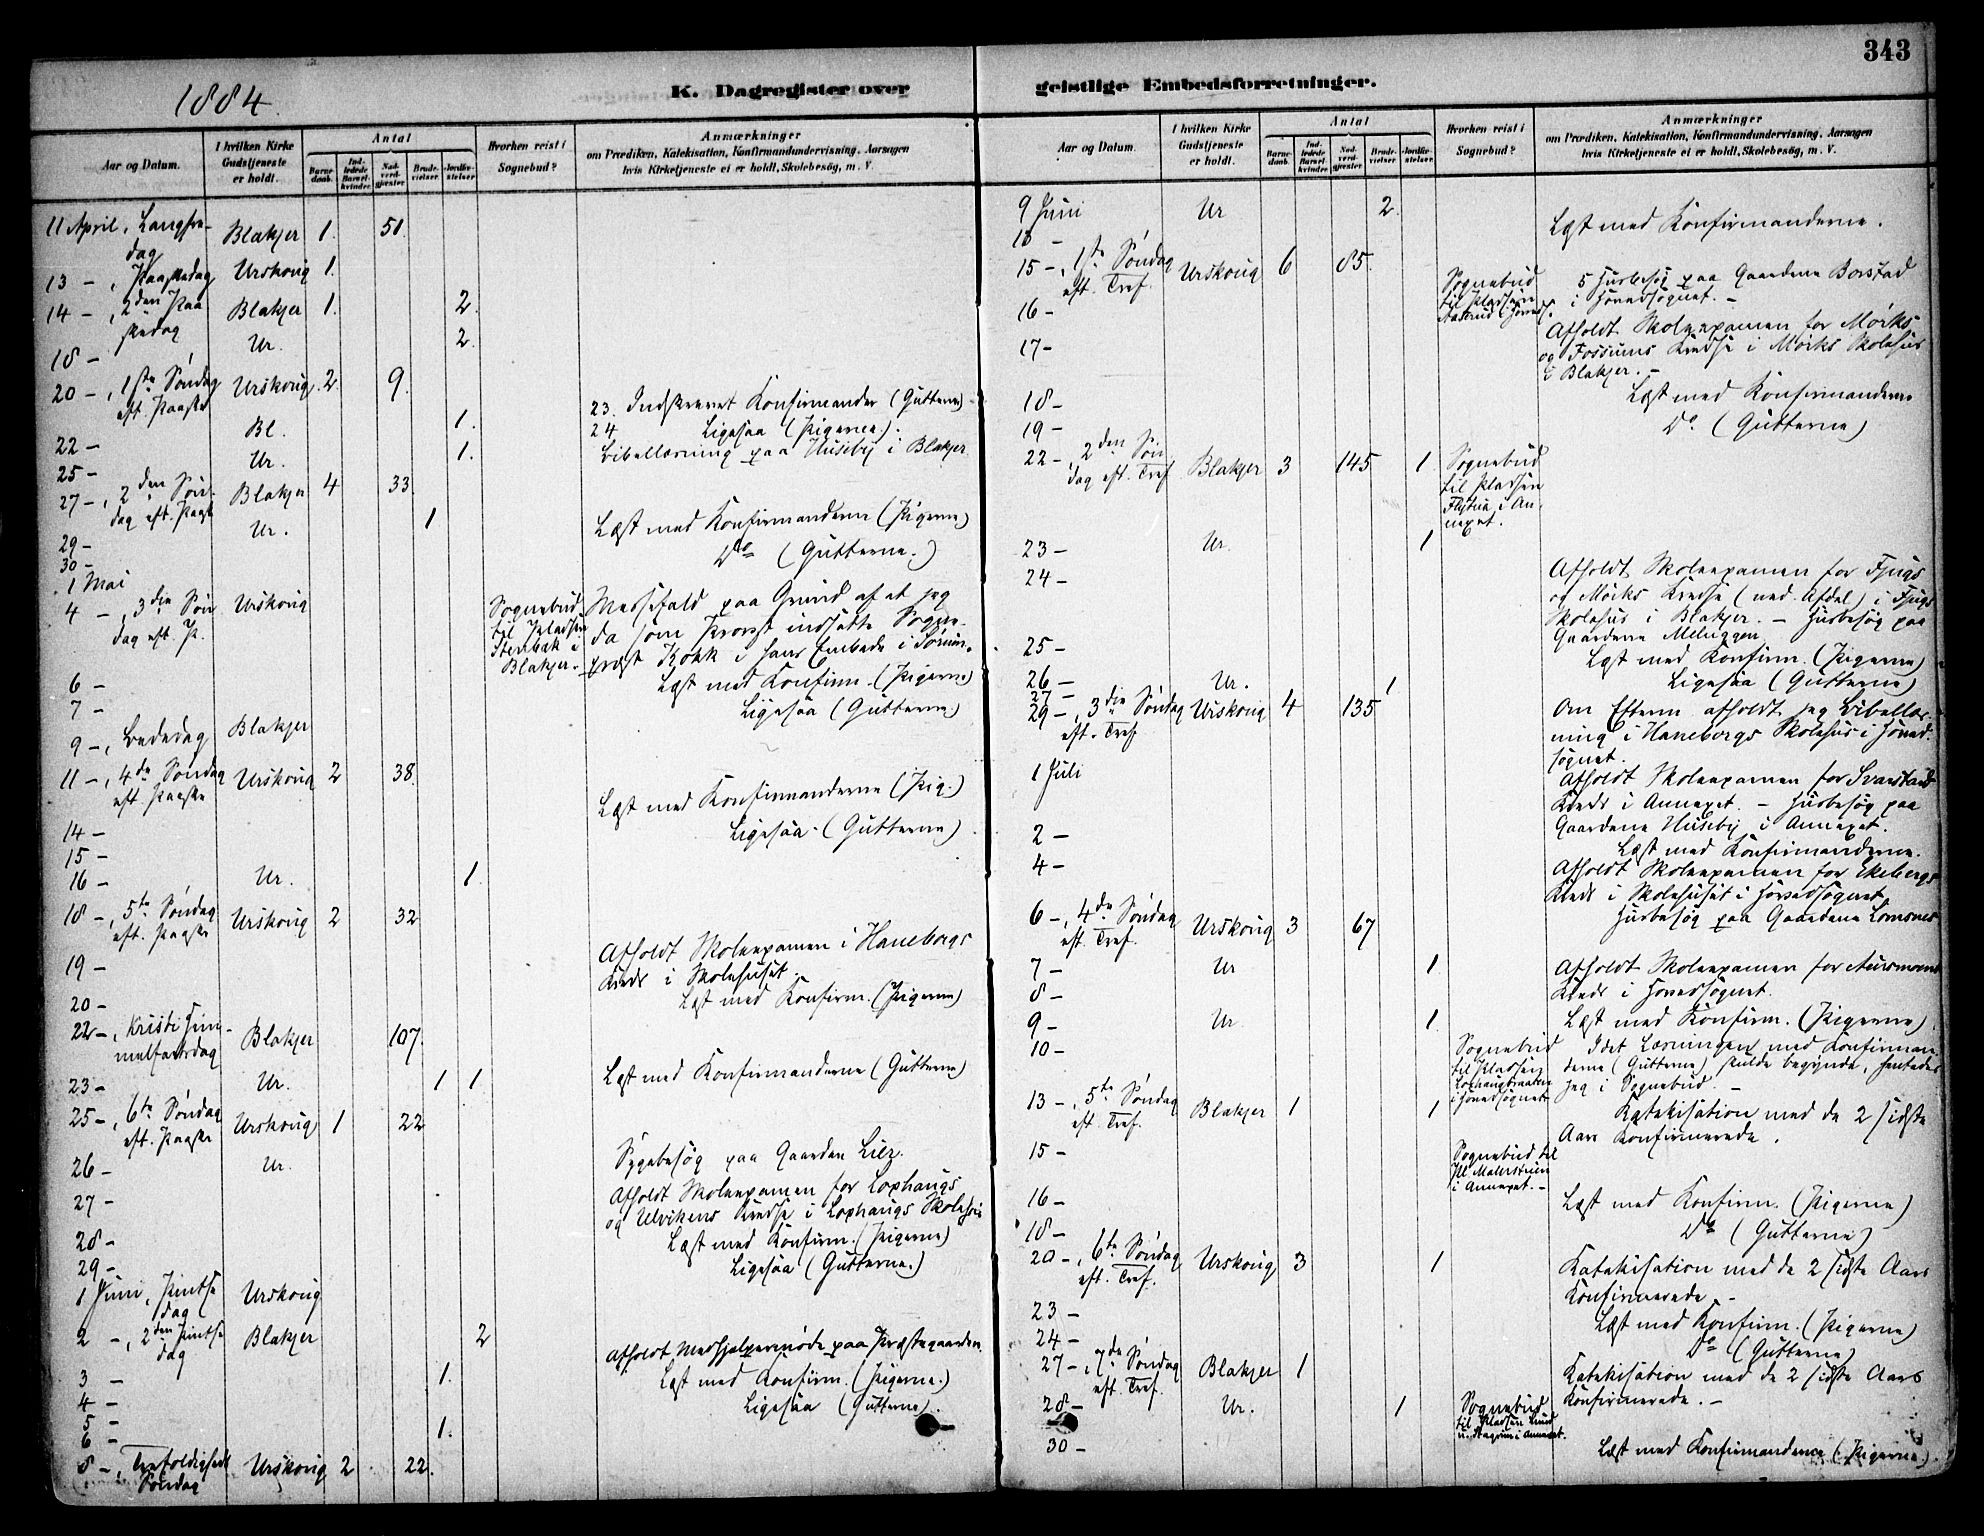 343
1884.
K. Dagregister over geistlige Embedsforretninger.
Aar og Datum.
I hvilken Kirke Gudstjeneste er holdt.
Antal
Barnedaab.
Indledede Barselkvinder.
Nadverdgjester
Brudevielser
Jordfæstelser
Hvorhen reist i Sognebud?
Anmærkninger
om Prædiken, Katekisation, Konfirmandundervisning, Aarsagen
hvis Kirketjeneste ei er holdt, Skolebesøg, m. V.
11 April, Langfredag Blakjer 1. 51.
13 – , Paaskedag Urskoug 1.
14 – , 2den Paaskedag Blakjer 1. 2.
18 – Ur. 2.
20 – , 1ste Søndag eft. Paaske Urskoug 2. 9.
23. Indskrevet Konfirmander (Gutterne)
24 Ligesaa (Pigerne).
22 – Bl. 1.
Bibellæsning paa Huseby i Blakjer
25 – Ur. 1.
27 – , 2den Søndag eft. Paaske Blakjer 4 33.
Ur. 1
29 – Læst med Konfirmanderne (Pigerne)
30 – Do (Gutterne.)
1 Mai
4 – , 3die Søndag eft. P. Urskoug
Sognebud til Pladsen Stenbæk i Blakjer. –
Messefald paa Grund af at jeg
da som Provst indsatte Sogne-
præst Kokk i hans Embede i Sørum.
6 – Læst med Konfirm. (Pigerne)
7 – Ligesaa (Gutterne)
9 – , Bededag Blakjer
11 – , 4de Søndag eft. Paaske Urskoug 2 38.
14 – Læst med Konfirmanderne (Pig.)
15 – Ligesaa (Gutterne)
16 – Ur. 1.
18 – , 5te Søndag eft. Paaske Urskoug 2 32
19 – Afholdt Skoleexamen i Haneborgs
Kreds i Skolehuset.
20 – Læst med Konfirm. (Pigerne)
22 – , Kristi Himmelfartsdag Blakjer 107.
23 – Ur. 1 1. Læst med Konfirmanderne (Gutterne)
25 – , 6te Søndag eft. Paaske Urskoug 1 22
26 – Ur. Sygebesøg paa Gaarden Lier.
27 – Afholdt Skoleexamen for Loxhaugs
og Ulvikens Kredse i Loxhaugs Skolehus
28 – Læst med Konfirm. (Pigerne)
29 – Ligesaa (Gutterne.)
1 Juni, Pintsedag Urskoug
2 – , 2den Pintsedag Blakjer 2
Afholdt Medhjælpermøde paa Præstegaarden.
3 – 1. Læst med Konfirm. (Pigerne.)
4 – Ligesaa (Gutterne).
5 – 1.
6 –
8 – , Trefoldigheds Søndag Urskoug 2 22.
Aar og Datum.
I hvilken Kirke Gudstjeneste er holdt.
Antal
Barnedaab.
Indledede Barselkvinder.
Nadverdgjester
Brudevielser.
Jordfæstelser.
Hvorhen reist i Sognebud?
Anmærkninger
om Prædiken, Katekisation, Konfirmandundervisning, Aarsagen
hvis Kirketjeneste ei er holdt, Skolebesøg, m. V.
9 Juni Ur 2.
Læst med Konfirmanderne.
15 – , 1ste Søndag eft. Tref. Urskoug 6 85.
16 – Sognebud til Pladsen
5 Husbesøg paa Gaardene Borstad
i Hovedsognet. –
17 – Afholdt Skoleexamen for Mørks
og Fossums Kredse i Mørks Skolehus
i Blakjer. –
18 – Læst med Konfirmanderne
19 – Do (Gutterne)
22 – , 2den Søndag eft. Tref Blakjer 3 145 1
Sognebud til Pladsen i Annexet.
23 – Ur. 1
24 – Afholdt Skoleexamen for Fjugs
og Mørks Kredse (ned. Afdel) i Fjugs
Skolehus i Blakjer. – Husbesøg paa
Gaardene Melnæggen
25 – Læst med Konfirm. (Pigerne)
26 – Ligesaa (Gutterne)
27 – Ur. 1
29 – , 3die Søndag eft. Tref Urskoug 4 135
Om Efterm afholdt jeg Bibellæs-
ning i Haneborgs Skolehus i Hoved-
sognet.
1 Juli Afholdt Skoleexamen for Svarstad
Kreds i Annexet. – Husbesøg paa
Gaardene Huseby i Annexet.
2 – Læst med Konfirmanderne.
4 – Afholdt Skoleexamen for Ekebergs
Kreds i Skolehuset i Hovedsognet
Husbesøg paa Gaardene Lomsnes
6 – , 4de Søndag eft. Tref. Urskoug 3 67
7 – Ur 1
8 – Afholdt Skoleexamen for Aursmoens
Kreds i Hovedsognet.
9 – Ur. 1. Læst med Konfirm. (Pigerne)
10 – Sognebud til Pladsen Loxhaugbraaten i Hovedsognet
Idet Læsningen med Konfirman-
derne (Gutterne) skulde begynde, hentedes
jeg i Sognebud. –
13 – , 5te Søndag eft. Tref. Blakjer 1 1
Katekisation med de 2 sidste
Aars Konfirmerede.
15 – Sognebud til i Annexet. –
16 – Læst med Konfirm. (Pigerne)
18 – Do (Gutterne)
20 – , 6te Søndag eft. Tref. Urskoug 3 1
Katekisation med de 2 sidste Aars
Konfirmerede –
23 – Læst med Konfirm. (Pigerne)
24 – Do (Gutterne)
27 – , 7de Søndag eft. Tref. Blakjer 1
Katekisation med de 2 sidste Aars
Konfirmerede. –
28 – Ur. 1 Sognebud til Pladsen Lund i Annexet.
30 – Læst med Konfirmanderne (Pigerne).